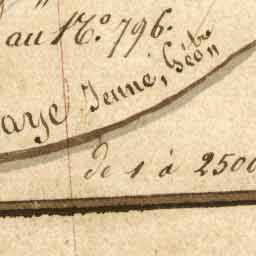 au N.º 796.
aye Jeune, Géo.tre
de 1 à 2500